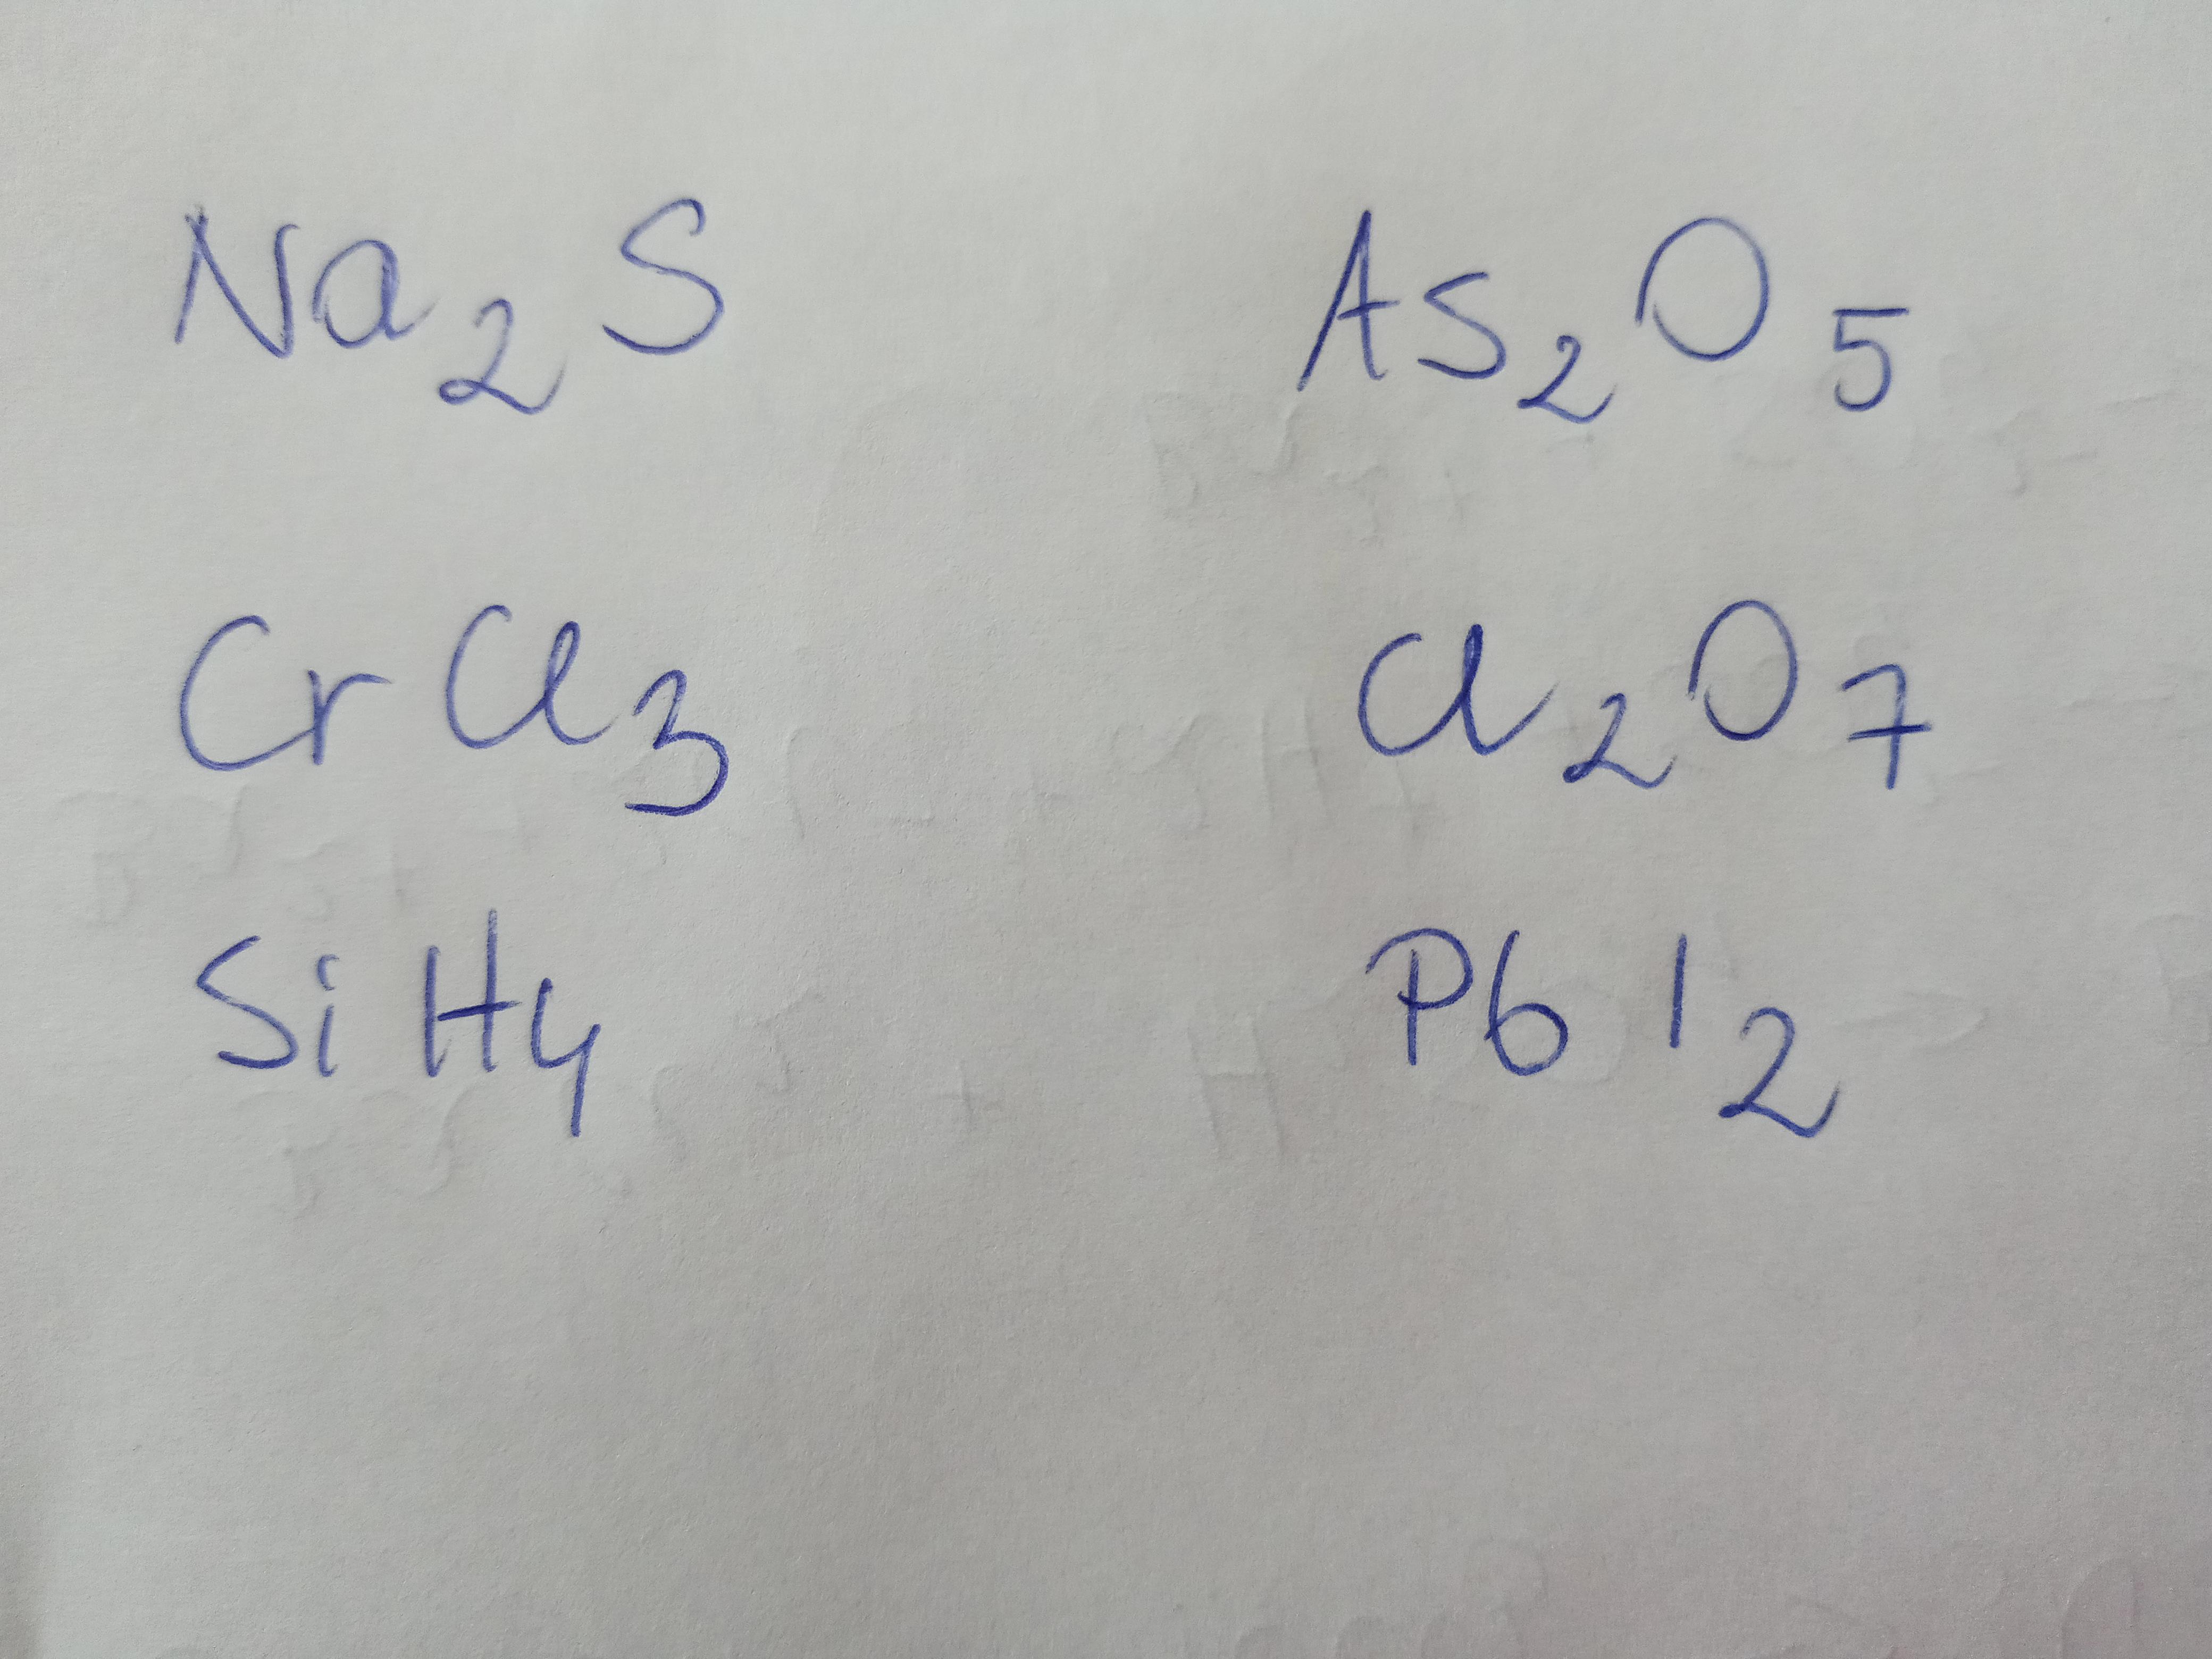 Na₂S As₂O₅
CrCl₃ Cl₂O₇
SiH₄ PbI₂